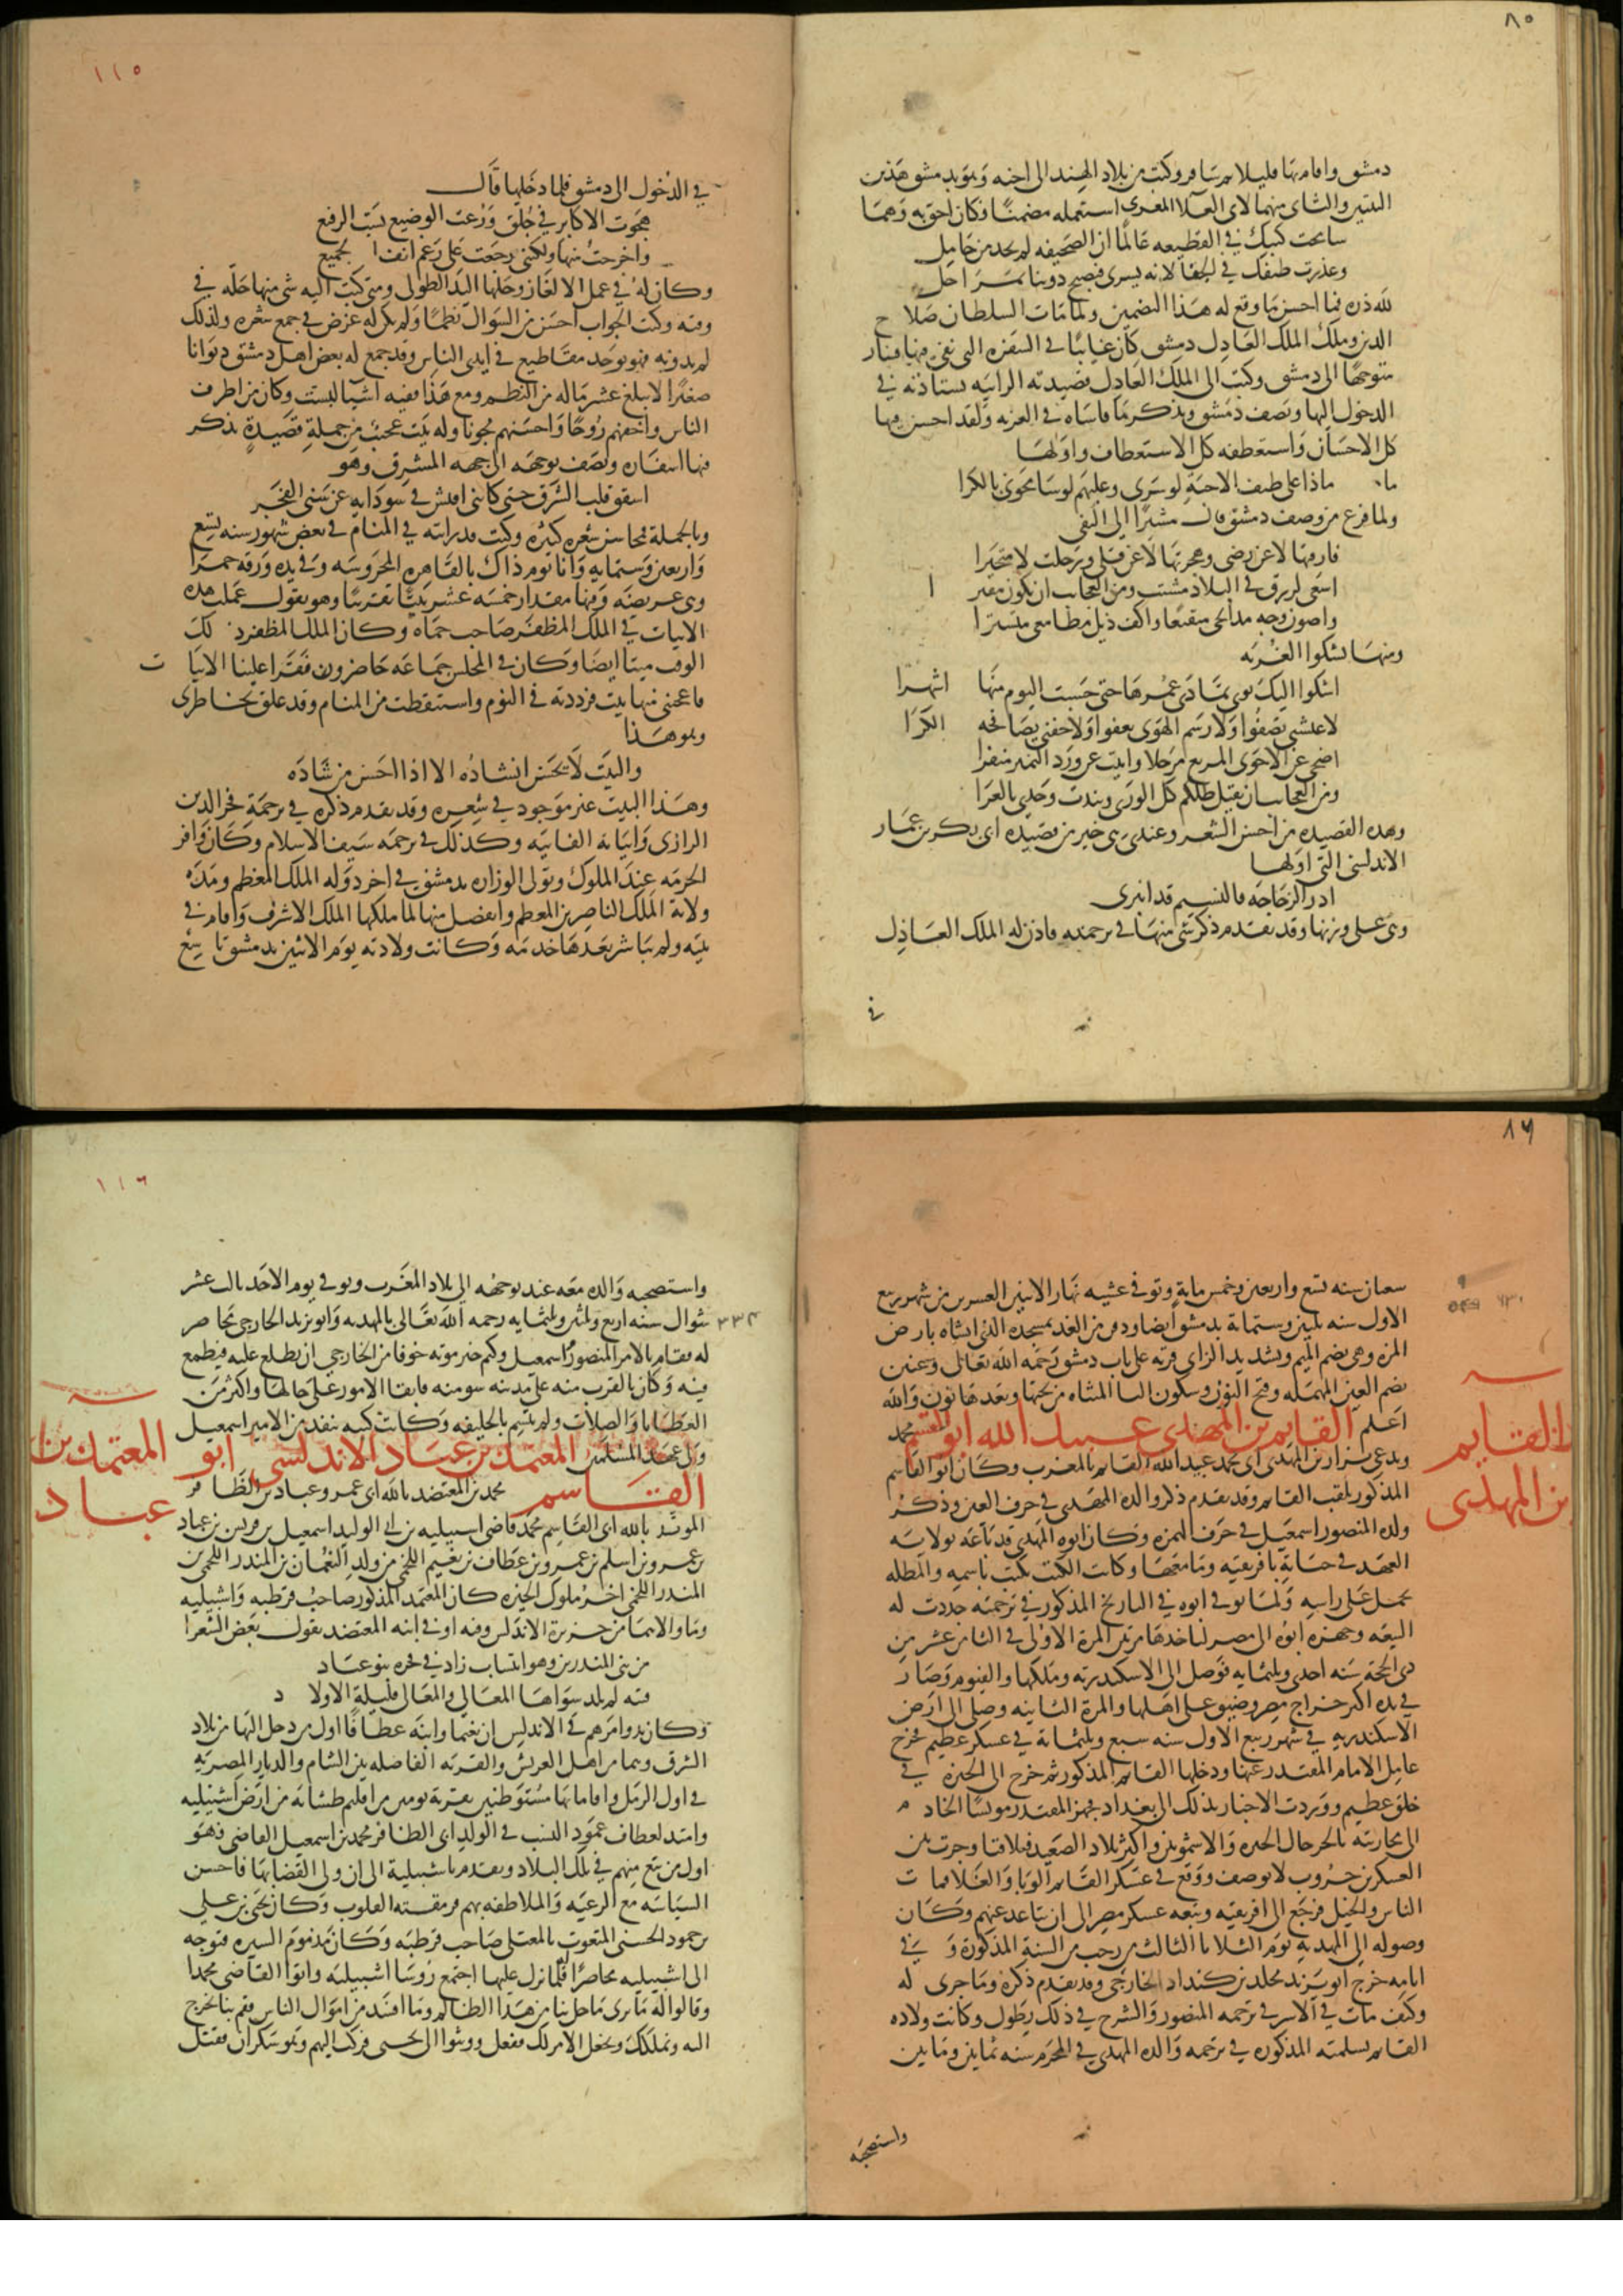 ٨٥
دمشق واقام بها قليلا ثم سافر وكتب من بلاد الهند الى اخيه وهو بدمشق هذين
البيتين والثاني منهما لابي العلا المعري استعمله مضمنا فكان احق به وهما
سامحت كتبك في القطيعه عالما ان الصحيفه لم تجد من حامل
وعذرت طيفك في الجفا لانه يسرى فيصبح دوننا بمراحل
لله دره فما احسن ما وقع له هذا التضمين ولما مات السلطان صلاح
الدين وملك الملك العادل دمشق كان غايبا في السفره التي نفي فيها فسار
متوجها الى دمشق وكتب الى الملك العادل قصيدته الرائيه يستاذنه في
الدخول اليها ويصف دمشق ويذكر ما قاساه في الغربه ولقد احسن فيها
كل الاحسان واستعطفه كل الاستعطاف واولها
ماذا على طيف الاحبة لو سرى وعليهم لو سامحوني بالكرا
ولما فرغ من وصف دمشق قال مشيرا الى النفى
فارقتها لا عن رضى وهجرتها لا عن قلى ورحلت لا متخيرا
اسعى لرزق في البلاد مشتت ومن العجائب ان يكون مقترا
واصون وجه مدائحي متقنعا واكف ذيل مطامعي متسترا
ومنها يشكوا الغربه
اشكوا اليك نوى تمادى عمرها حتى حسبت اليوم منها اشهرا
لا عيشتي تصفوا ولا رسم الهوى يعفوا ولا جفني يصافحه الكرا
اضحي عن الاحوى المريع مرحلا وابيت عن ورد النمير منفرا
ومن العجائب ان يقيل بظلكم كل الورى ونبذت وحدي بالعرا
وهذه القصيده من احسن الشعر وعندي هي خير من قصيده ابي بكر بن عمار
الاندلسي التي اولها
ادر الزجاجه فالنسيم قد انبرى
وهي على وزنها وقد تقدم ذكر شي منها في ترجمته فاذن له الملك العادل
في
١١٥
في الدخول الى دمشق فلما دخلها قال
هجوت الاكابر في جلق ورعت الوضيع بسب الرفيع
واخرجت منها ولكنني رجعت على رغم انف الجميع
وكان له في عمل الالغاز وحلها اليد الطولى ومتى كتب اليه شي منها حله في
وقته وكتب الجواب احسن من السوال نظما ولم يكن له غرض في جمع شعره ولذلك
لم يدونه فهو يوجد مقاطيع في ايدي الناس وقد جمع له بعض اهل دمشق ديوانا
صغيرا لا يبلغ عشر ماله من النظم ومع هذا ففيه اشيا ليست وكان من اظرف
الناس واخفهم روحا واحسنهم مجونا وله بيت عجيب من جملة قصيدة يذكر
فيها اسفاره ويصف توجهه الى جهه المشرق وهو
اشقق قلب الشرق حتى كانني افتش في سودايه عن سنى الفجر
وبالجملة فمحاسن شعره كثيره وكنت قد رايته في المنام في بعض شهور سنه تسع
واربعين وستمايه وانا يوم ذاك بالقاهره المحروسه وفي يده ورقه حمرا
وهي عريضه وفيها مقدار خمسه عشر بيتا تقريبا وهو يقول عملت هذه
الابيات في الملك المظفر صاحب حماه وكان الملك المظفر ذلك
الوقت ميتا ايضا وكان في المجلس جماعه حاضرون فقرا علينا الابيات
فاعجبني منها بيت فرددته في النوم واستيقظت من المنام وقد علق بخاطرى
وهو هذا
والبيت لا يحسن انشاده الا اذا احسن من شاده
وهذا البيت غير موجود في شعره وقد تقدم ذكره في ترجمة فخر الدين
الرازى وابياته الفائيه وكذلك في ترجمه سيف الاسلام وكان وافر
الحرمه عند الملوك وتولى الوزاره بدمشق في اخر دوله الملك المعظم ومده
ولاية الملك الناصر بن المعظم وانفصل منها لما ملكها الملك الاشرف واقام في
بيته ولم يباشر بعدها خدمه وكانت ولادته يوم الاثنين بدمشق تاسع
٨٦
شعبان سنه تسع واربعين وخمس ماية وتوفي عشيه نهار الاثنين العشرين من شهر ربيع
الاول سنه ثلثين وستماية بدمشق ايضا ودفن من الغد بمسجده الذي انشاه بارض
المزه وهي بضم الميم وتشديد الزاي قريه على باب دمشق رحمه الله تعالى وعنين
بضم العين المهمله وفتح النون وسكون اليا المثناه من تحتها وبعدها نون والله
اعلم القايم بن المهدى عبيد الله ابو القسم محمد
القايم
بن المهدى
ويدعى نزار بن المهدى ابى محمد عبيد الله القائم بالمغرب وكان ابو القاسم
المذكور يلقب القائم وقد تقدم ذكر والده المهدى في حرف العين وذكر
ولده المنصور اسمعيل في حرف الهمزه وكان ابوه المهدي قد بايع له بولايه
العهد في حياته بافريقيه وما معها وكانت الكتب تكتب باسمه والمظله
تحمل على راسه ولما توفي ابوه في التاريخ المذكور في ترجمته جددت له
البيعه وجهزه ابوه الى مصر لياخذها مرتين المرة الاولى في الثامن عشر من
ذى الحجة سنه احدى وثلثمايه فوصل الى الاسكندرية وملكها والفيوم وصار
في يده اكثر خراج مصر وضيق على اهلها والمرة الثانيه وصل الى ارض
الاسكندريه في شهر ربيع الاول سنه سبع وثلثماية في عسكر عظيم فخرج
عامل الامام المقتدر عنها ودخلها القائم المذكور ثم خرج الى الجيزه في
خلق عظيم ووردت الاخبار بذلك الى بغداد فجهز المقتدر مونسا الخادم
الى محاربته بالجد حال الجيزه والاشمونين واكثر بلاد الصعيد فتلاقتا وجرت بين
العسكرين حروب لا توصف ووقع في عسكر القائم الوبا والغلا فمات
الناس والخيل فرجع الى افريقيه وتبعه عسكر مصر الى ان تباعد عنهم وكان
وصوله الى المهديه يوم الثلاثا الثالث من رجب من السنة المذكورة وفي
ايامه خرج ابو يزيد مخلد بن كنداد الخارجي وقد تقدم ذكره وما جرى له
وكيف مات في الاسر في ترجمه المنصور والشرح في ذلك يطول وكانت ولاده
القائم بسلميه المذكوره في ترجمه والده المهدي في المحرم سنه ثمانين ومايتين
واستصحبه
١١٦
واستصحبه والده معه عند توجهه الى بلاد المغرب وتوفي يوم الاحد ثالث عشر
شوال سنه اربع وثلثين وثلثمايه رحمه الله تعالى بالمهديه وابو يزيد الخارجي محاصر
٣٣٤
له فقام بالامر المنصور اسمعيل وكتم خبر موته خوفا من الخارجي ان يطلع عليه فيطمع
فيه وكان بالقرب منه على مدينه سوسه فابقا الامور على حالها واكثر من
العطايا والصلات ولم يتسم بالخليفه وكانت كتبه تنفذ من الامير اسمعيل
ولي عهد المسلمين المعتمد بن عباد الاندلسي ابو
المعتمد بن
عباد
القاسم محمد بن المعتضد بالله ابى عمرو عباد بن الظافر
المويد بالله ابى القاسم محمد قاضى اشبيليه بن ابي الوليد اسمعيل بن قريش بن عباد
بن عمرو بن اسلم بن عمرو بن عطاف بن نعيم اللخمي من ولد النعمان بن المنذر اللخمي بن
المنذر اللخمي اخر ملوك الحيره كان المعتمد المذكور صاحب قرطبه واشبيليه
وما والاهما من جزيرة الاندلس وفيه او في ابنه المعتضد يقول بعض الشعرا
من بني المنذرين وهو انتساب زاد في فخره بنو عباد
فتيه لم تلد سواها المعالي والمعالى قليلة الاولاد
وكان بدو امرهم في الاندلس ان نعيما وابنه عطافا اول من دخل اليها من بلاد
الشرق وهما من اهل العريش والقريه الفاصله بين الشام والديار المصريه
في اول الرمل واقاما بها مستوطنين بقرية يومين من اقليم طشانه من ارض اشبيليه
وامتد لعطاف عمود النسب في الولد الى الظافر محمد بن اسمعيل القاضي فهو
اول من نبغ منهم في تلك البلاد وتقدم باشبيلية الى ان ولى القضا بها فاحسن
السياسه مع الرعيه والملاطفه بهم فرمقته القلوب وكان يحيى بن علي
بن حمود الحسني المنعوت بالمعتلى صاحب قرطبه وكان مذموم السيره فتوجه
الى اشبيليه محاصرا فلما نزل عليها اجتمع روسا اشبيليه واتوا القاضي محمدا
وقالوا له ما ترى ما حل بنا من هذا الظالم وما افسد من اموال الناس فقم بنا نخرج
اليه ونملكك ونجعل الامر لك ففعل ووثبوا الى يحيى فركب اليهم وهو سكران فقتل